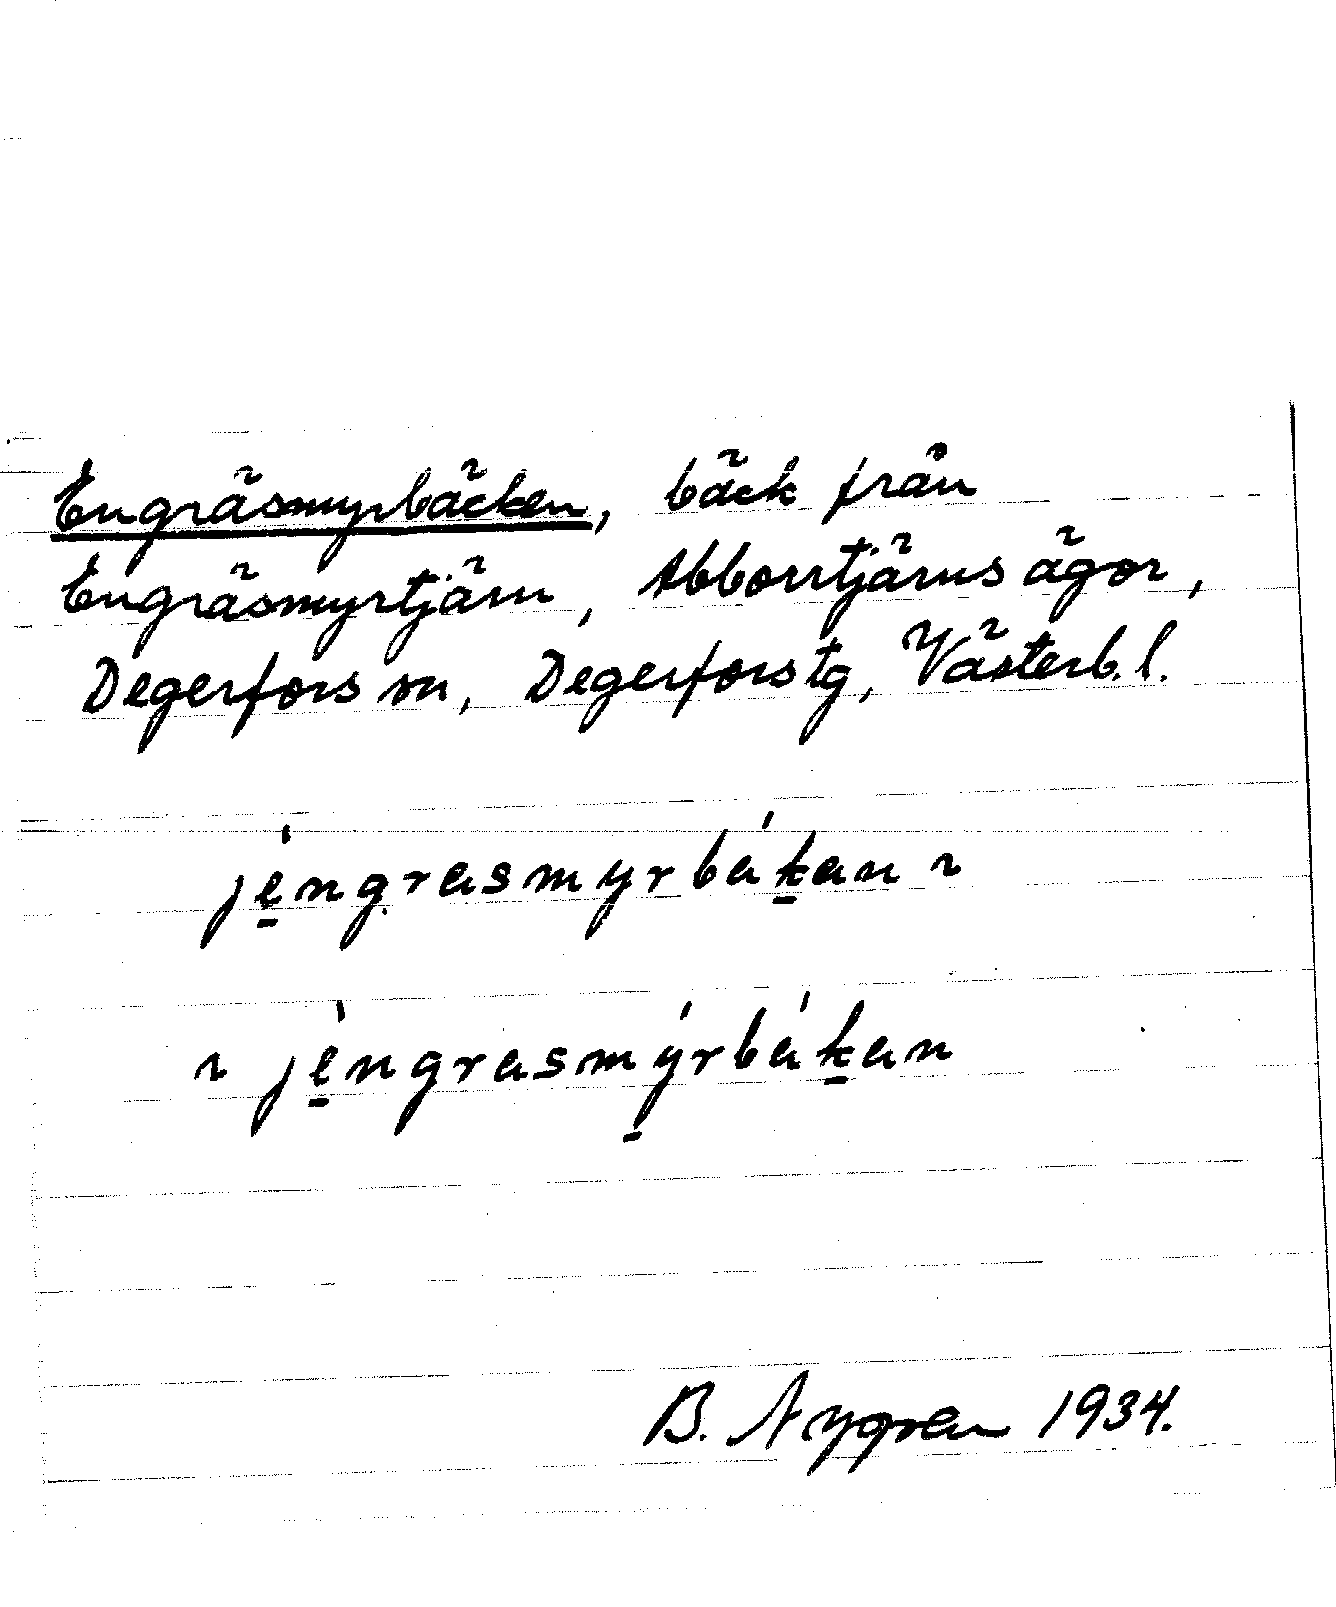 Engräsmyrbäcken, bäck från
Engräsmyrtjärn, Abborrtjärns ägor,
Degerfors sn, Degerfors tg, Västerb. l.
je̠̍ngrasmyrbáḵan ~
~ je̠̍ngrasmý̠rbáḵan
B. Nygren 1934.